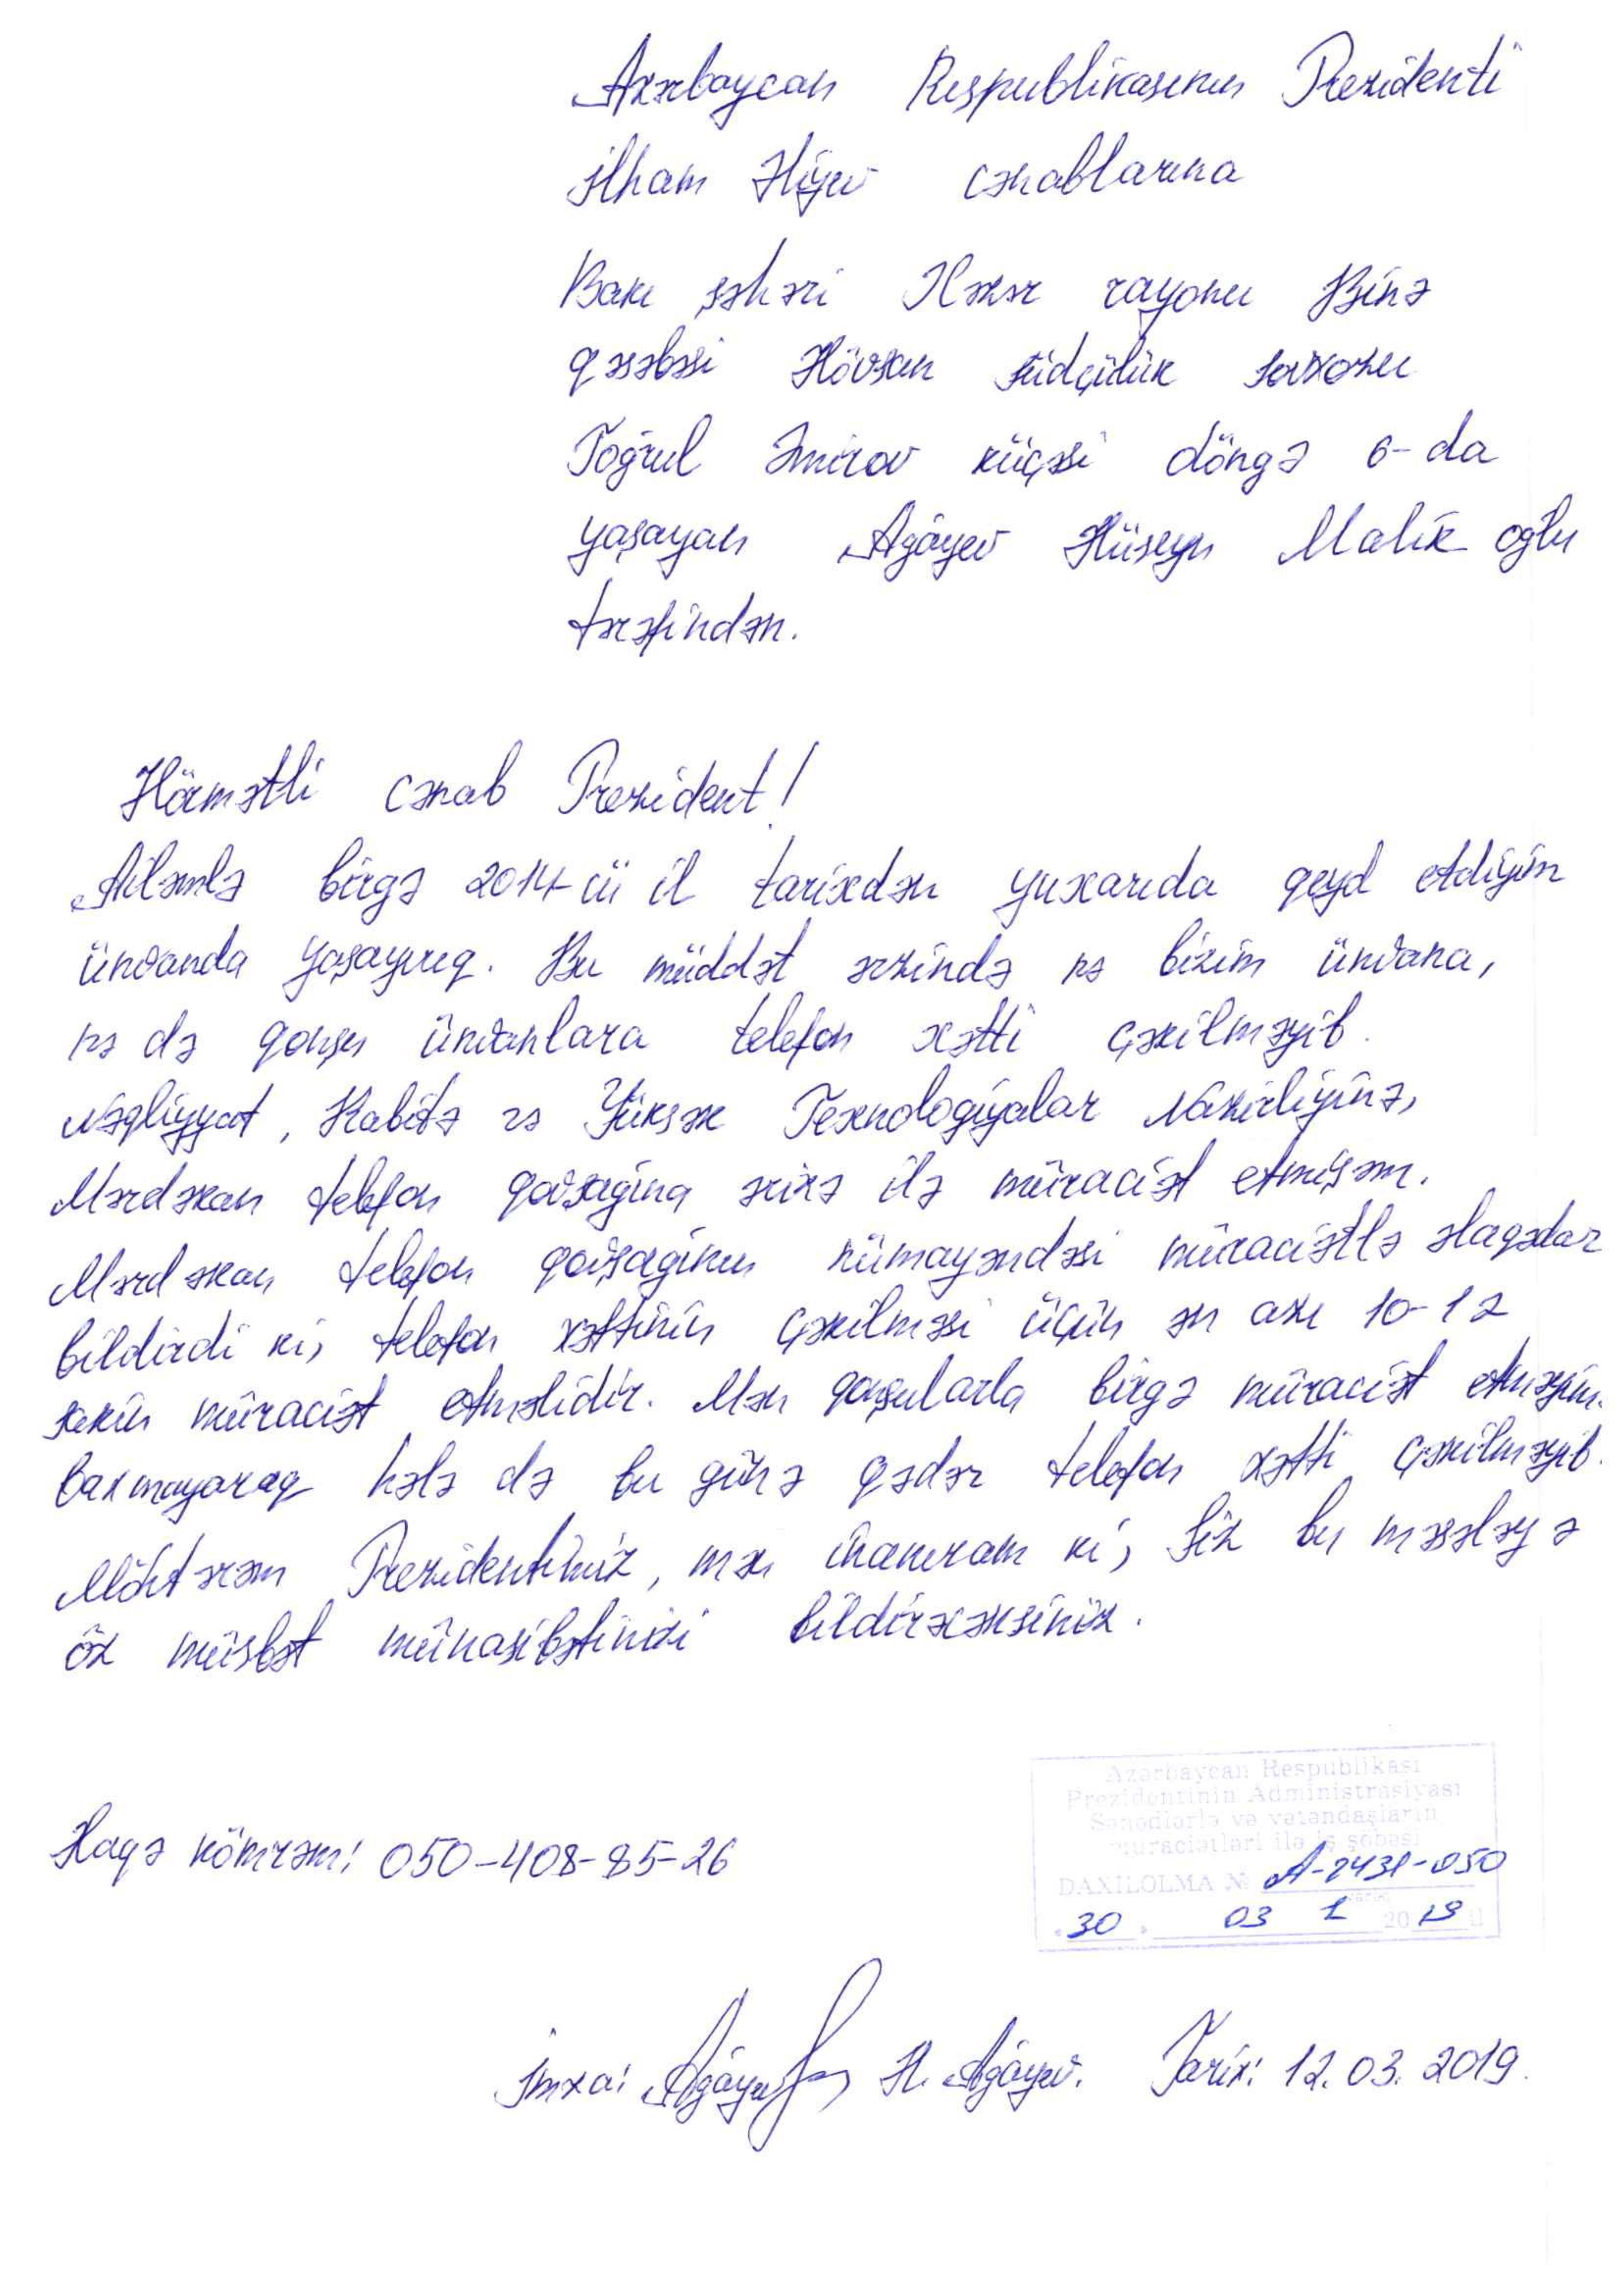 Azərbaycan Respublikasının Prezidenti
İlham Əliyev cənablarına
Bakı şəhəri Xəzər rayonu Binə
qəsəbəsi Hövsan südçülük sovxozu
Toğrul Əmirov küçəsi döngə 6-da
yaşayan Ağayev Hüseyn Malik oğlu
tərəfindən.
Hörmətli cənab Prezident!
Ailəmlə birgə 2014-cü il tarixdən yuxarıda qeyd etdiyim
ünvanda yaşayırıq. Bu müddət ərzində nə bizim ünvana,
nə də qonşu ünvanlara telefon xətti çəkilməyib.
Nəqliyyat, Rabitə və Yüksək Texnologiyalar Nazirliyinə,
Mərdəkan telefon qovşağına ərizə ilə müraciət etmişəm.
Mərdəkan telefon qovşağının nümayəndəsi müraciətlə əlaqədar
bildirdi ki, telefon xəttinin çəkilməsi üçün ən azı 10-12
sakin müraciət etməlidir. Mən qonşularla birgə müraciət etməyim
baxmayaraq hələ də bu günə qədər telefon xətti çəkilməyib.
Möhtərəm Prezidentimiz, mən inanıram ki, Siz bu məsələyə
öz müsbət münasibətinizi bildirəcəksiniz.
Azərbaycan Respublikası
Prezidentinin Administrasiyası
Sənədlərlə və vətəndaşların
müraciətləri ilə iş şöbəsi
Əlaqə nömrəm: 050-408-85-26
DAXİLOLMA № A-2431-050
30 03 1 2019 il
İmza: Ağayev H. Ağayev. Tarix: 12.03.2019.